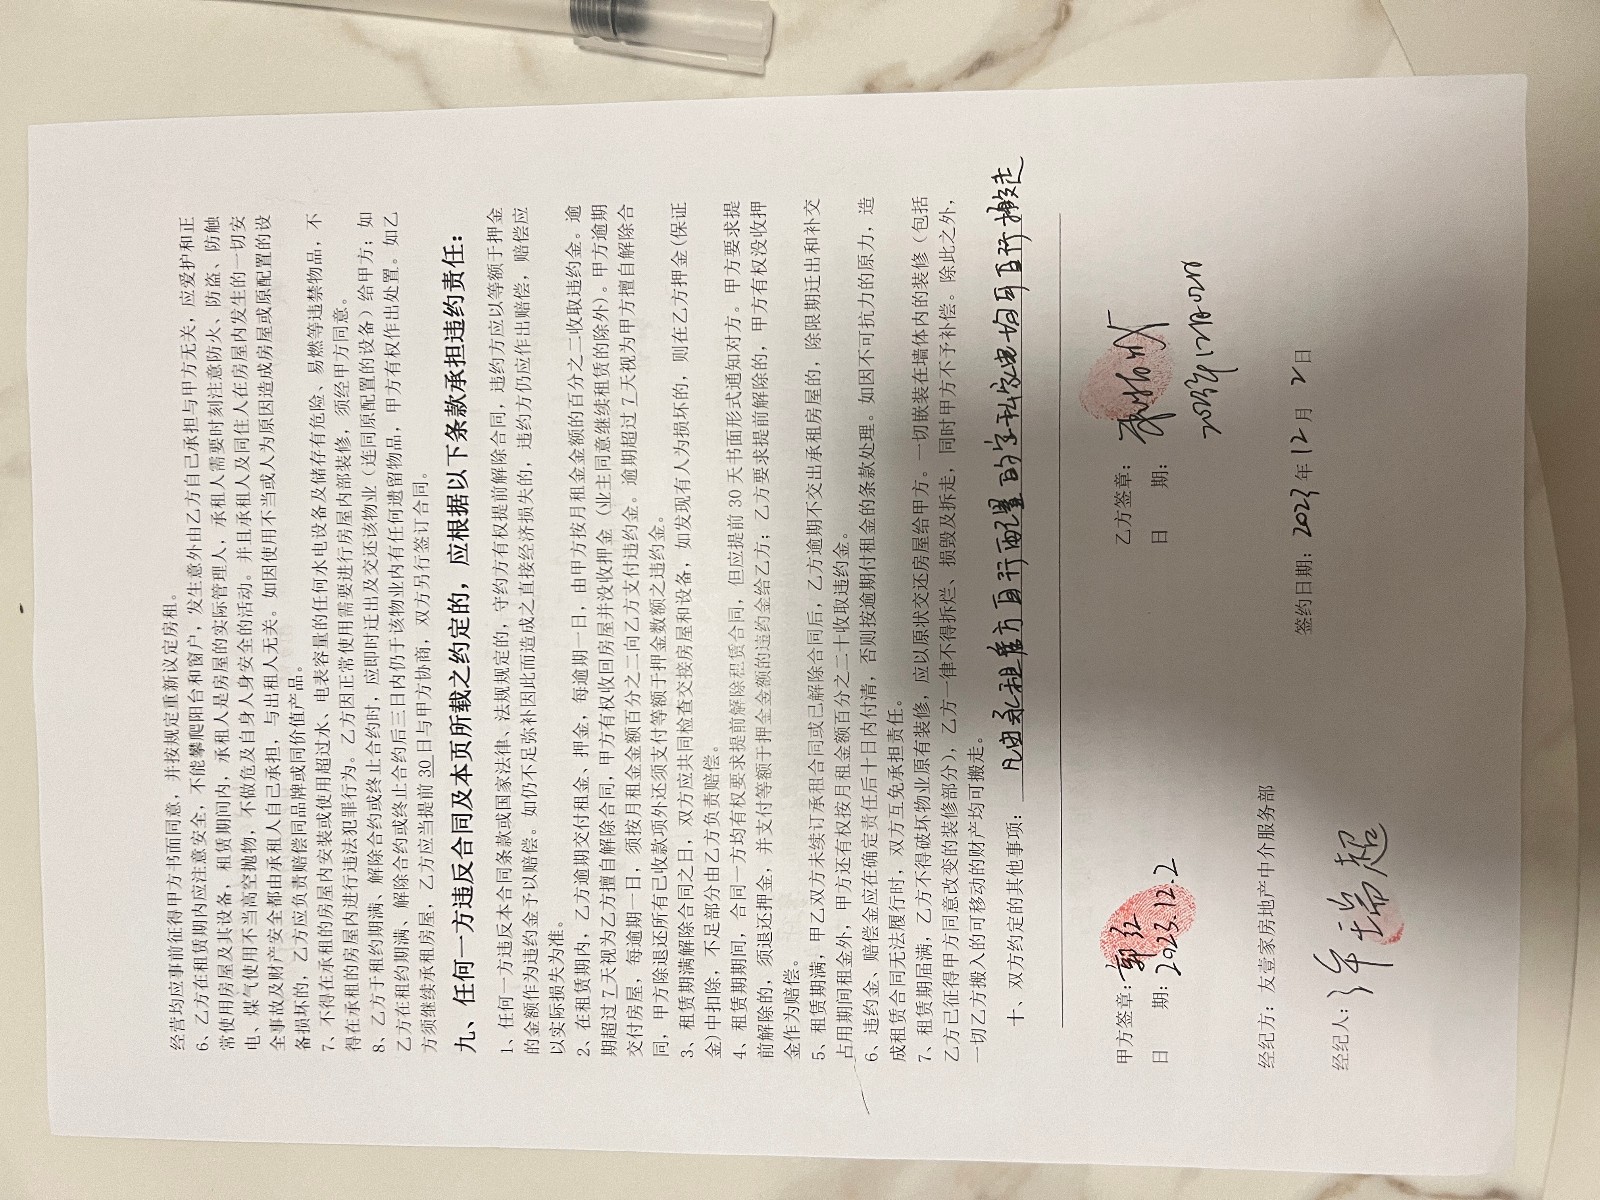 经营均应事前征得甲方书面同意，并按规定重新议定房租。
6、乙方在租赁期内应注意安全，不能攀爬阳台和窗户，发生意外由乙方自己承担与甲方无关，应爱护和正
常使用房屋及其设备，租赁期间内，承租人是房屋的实际管理人，承租人需要时刻注意防火、防盗、防触
电、煤气使用不当高空抛物，不做危及自身人身安全的活动。并且承租人及同住人在房屋内发生的一切安
全事故及财产安全都由承租人自己承担，与出租人无关。如因使用不当或人为原因造成房屋或原配置的设
备损坏的，乙方应负责赔偿同品牌或同价值产品。
7、不得在承租的房屋内安装或使用超过水、电表容量的任何水电设备及储存有危险、易燃等违禁物品，不
得在承租的房屋内进行违法犯罪行为。乙方因正常使用需要进行房屋内部装修，须经甲方同意。
8、乙方于租约期满、解除合约或终止合约时，应即时迁出及交还该物业（连同原配置的设备）给甲方；如
乙方在租约期满、解除合约或终止合约后三日内仍于该物业内有任何遗留物品，甲方有权作出处置。如乙
方须继续承租房屋，乙方应当提前 30 日与甲方协商，双方另行签订合同。
九、任何一方违反合同及本页所载之约定的，应根据以下条款承担违约责任：
1、任何一方违反本合同条款或国家法律、法规规定的，守约方有权提前解除合同，违约方应以等额于押金
的金额作为违约金予以赔偿。如仍不足弥补因此而造成之直接经济损失的，违约方仍应作出赔偿，赔偿应
以实际损失为准。
2、在租赁期内，乙方逾期交付租金、押金，每逾期一日，由甲方按月租金金额的百分之二收取违约金。逾
期超过 7 天视为乙方擅自解除合同，甲方有权收回房屋并没收押金（业主同意继续租赁的除外）。甲方逾期
交付房屋，每逾期一日，须按月租金金额百分之二向乙方支付违约金。逾期超过 7 天视为甲方擅自解除合
同，甲方除退还所有已收款项外还须支付等额于押金数额之违约金。
3、租赁期满解除合同之日，双方应共同检查交接房屋和设备，如发现有人为损坏的，则在乙方押金(保证
金)中扣除，不足部分由乙方负责赔偿。
4、租赁期期间，合同一方均有权要求提前解除租赁合同，但应提前 30 天书面形式通知对方。甲方要求提
前解除的，须退还押金，并支付等额于押金金额的违约金给乙方；乙方要求提前解除的，甲方有权没收押
金作为赔偿。
5、租赁期满，甲乙双方未续订承租合同或已解除合同后，乙方逾期不交出承租房屋的，除限期迁出和补交
占用期间租金外，甲方还有权按月租金额百分之二十收取违约金。
6、违约金、赔偿金应在确定责任后十日内付清，否则按逾期付租金的条款处理。如因不可抗力的原力，造
成租赁合同无法履行时，双方互免承担责任。
7、租赁期届满，乙方不得破坏物业原有装修，应以原状交还房屋给甲方。一切嵌装在墙体内的装修（包括
乙方已征得甲方同意改变的装修部分），乙方一律不得拆烂、损毁及拆走，同时甲方不予补偿。除此之外，
一切乙方搬入的可移动的财产均可搬走。
十、双方约定的其他事项： 凡由承租方自行配置的家私家电均可自行搬走
甲方签章：郭红 乙方签章：
日 期：2023.12.2 日 期：
2023年12月02日
经纪方：友壹家房地产中介服务部
签约日期：2023年12月2日
经纪人：许瑞超